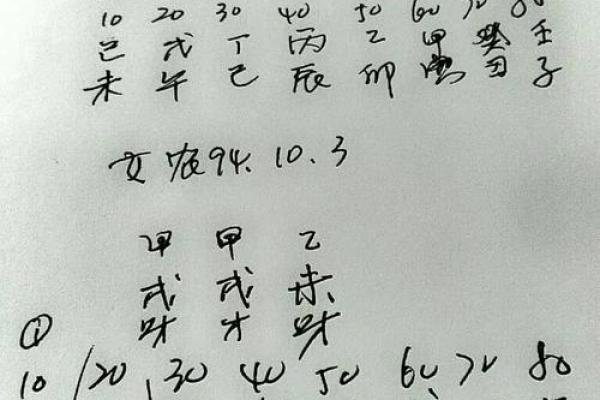 10 20 30 40 50 60 70 80
己 戊 丁 丙 乙 甲 癸 壬
未 午 巳 辰 卯 寅 丑 子
女 农94.10.3
甲 甲 乙
戌 戌 未
财 才 财
①
10 /20 30 40 50 60 70 80